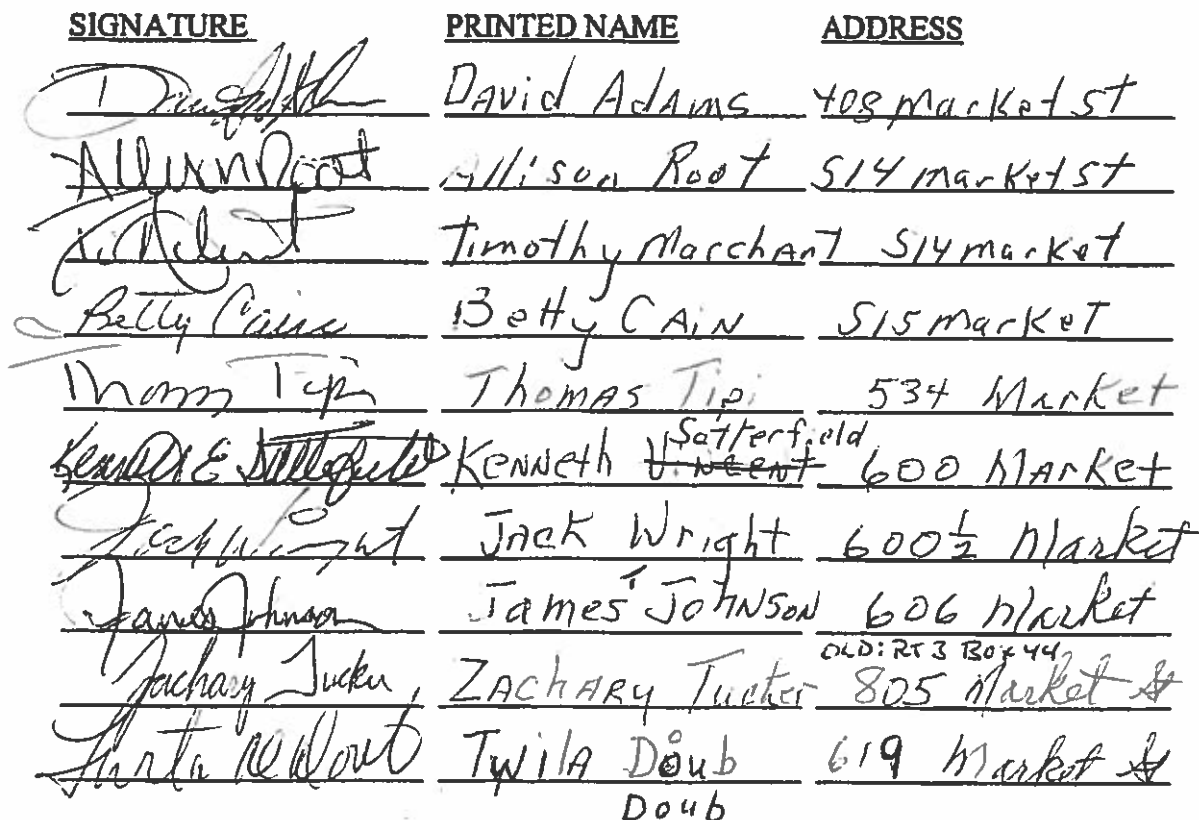 SIGNATURE PRINTED NAME ADDRESS
David Adams 408 Market st
Allison Root Allison Root 514 market st
Timothy Marchant 514 market
Betty Cain Betty CAIN 515 market
Thomas Tipi Thomas Tipi 534 Market
Satterfield
Kenneth E Satterfield Kenneth Vincent 600 Market
Jack Wright Jack Wright 600 1/2 Market
James Johnson James Johnson 606 Market
OLD: RT 3 Box 44
Zachary Tucker Zachary Tucker 805 Market St
Twila Doub 619 Market St
Doub